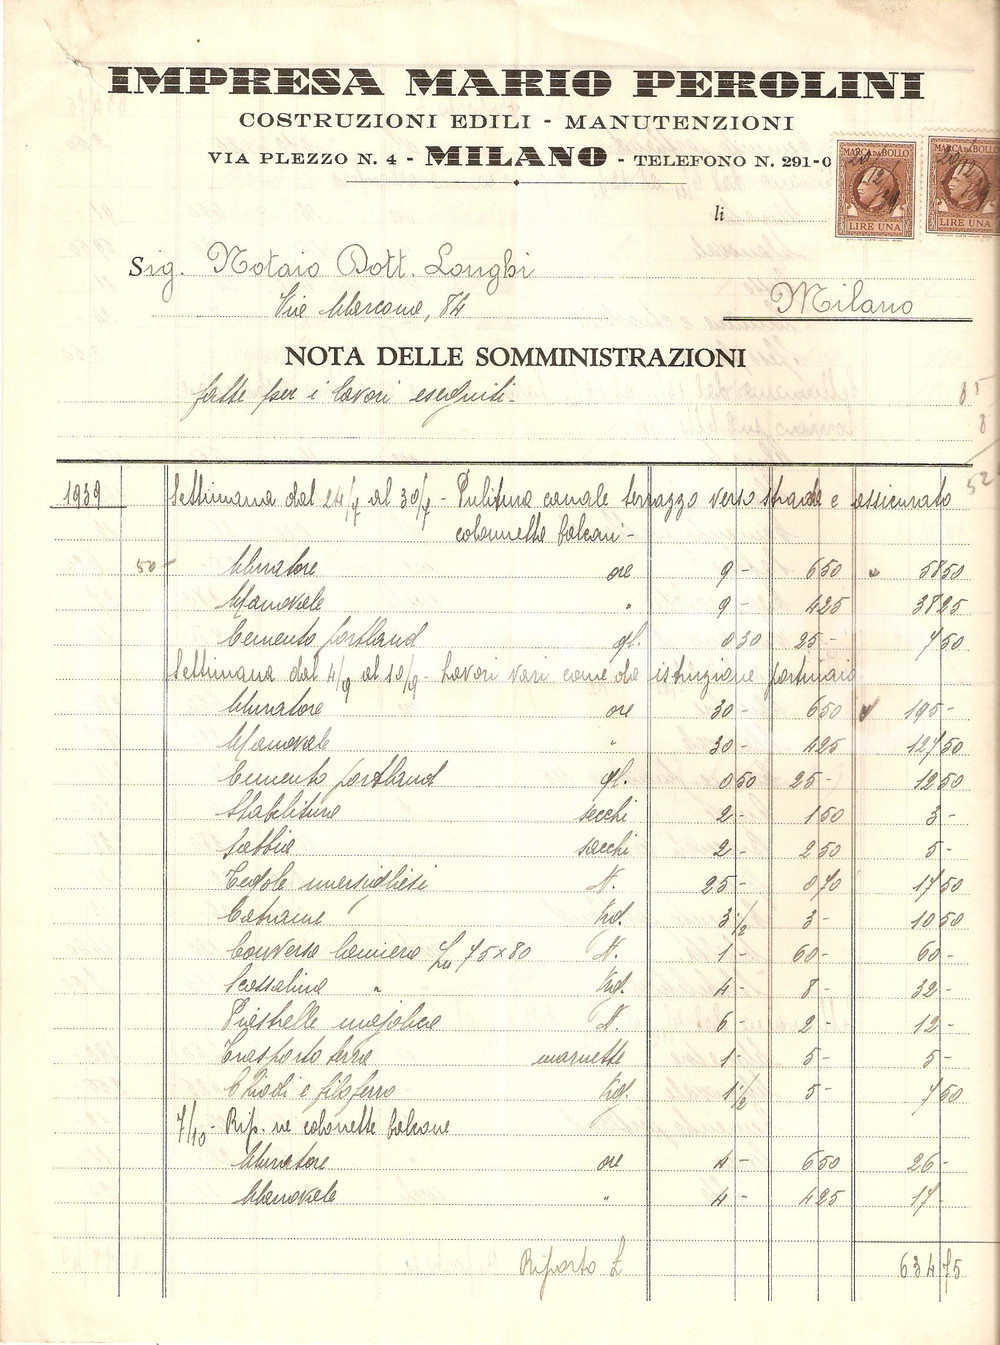 IMPRESA MARIO PEROLINI
COSTRUZIONI EDILI - MANUTENZIONI
VIA PLEZZO N. 4 - MILANO - TELEFONO N. 291-0
MARCA DA BOLLO
LIRE UNA
MARCA DA BOLLO
LIRE UNA
li
Sig. Notaio Dott. Longhi
Via Marcona, 84
Milano
NOTA DELLE SOMMINISTRAZIONI
fatte per i lavori eseguiti.
1939 Settimana dal 24/7 al 30/7 - Pulitura canale terrazzo verso strada e assicurato
colonnette balconi -
50 - Muratore ore 9 - 6 50 58 50
Manovale " 9 - 4 25 38 25
Cemento portland ql. 0 30 25 - 7 50
Settimana dal 4/9 al 10/9 - Lavori vari come da istruzione portinaio
Muratore ore 30 - 6 50 195 -
Manovale " 30 - 4 25 127 50
Cemento portland ql. 0 50 25 - 12 50
Stabilitura secchi 2 - 1 50 3 -
Sabbia sacchi 2 - 2 50 5 -
Tegole marsigliesi N. 25 - 0 70 17 50
Catrame Kg. 3 1/2 3 - 10 50
Conversa lamiera 75 x 80 N. 1 - 60 - 60 -
Scossalina " Kg. 4 - 8 - 32 -
Piastrelle majolica N. 6 - 2 - 12 -
Trasporto terra marnette 1 - 5 - 5 -
Chiodi e filo ferro Kg. 1 1/2 5 - 7 50
7/10 - Rip. ne colonette balcone
Muratore ore 4 - 6 50 26 -
Manovale " 4 - 4 25 17 -
Riporto £ 634 75